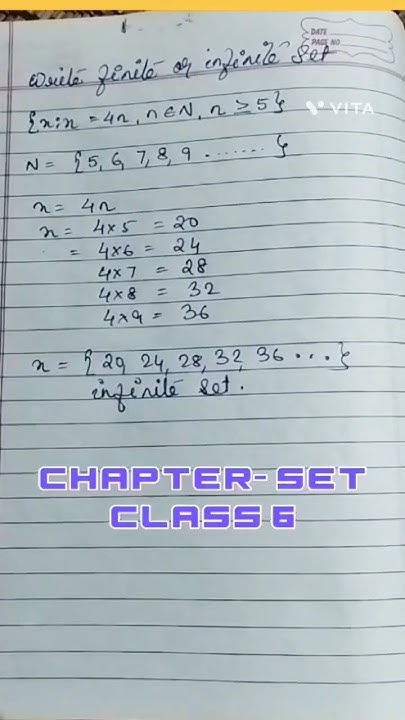 DATE
PAGE NO
write finite or infinite set
{x:x = 4n, n ∈ N, n ≥ 5}
VITA
N = {5, 6, 7, 8, 9 .......}
x = 4n
x = 4×5 = 20
= 4×6 = 24
4×7 = 28
4×8 = 32
4×9 = 36
x = {20, 24, 28, 32, 36 ...}
infinite set.
CHAPTER- SET
CLASS 6